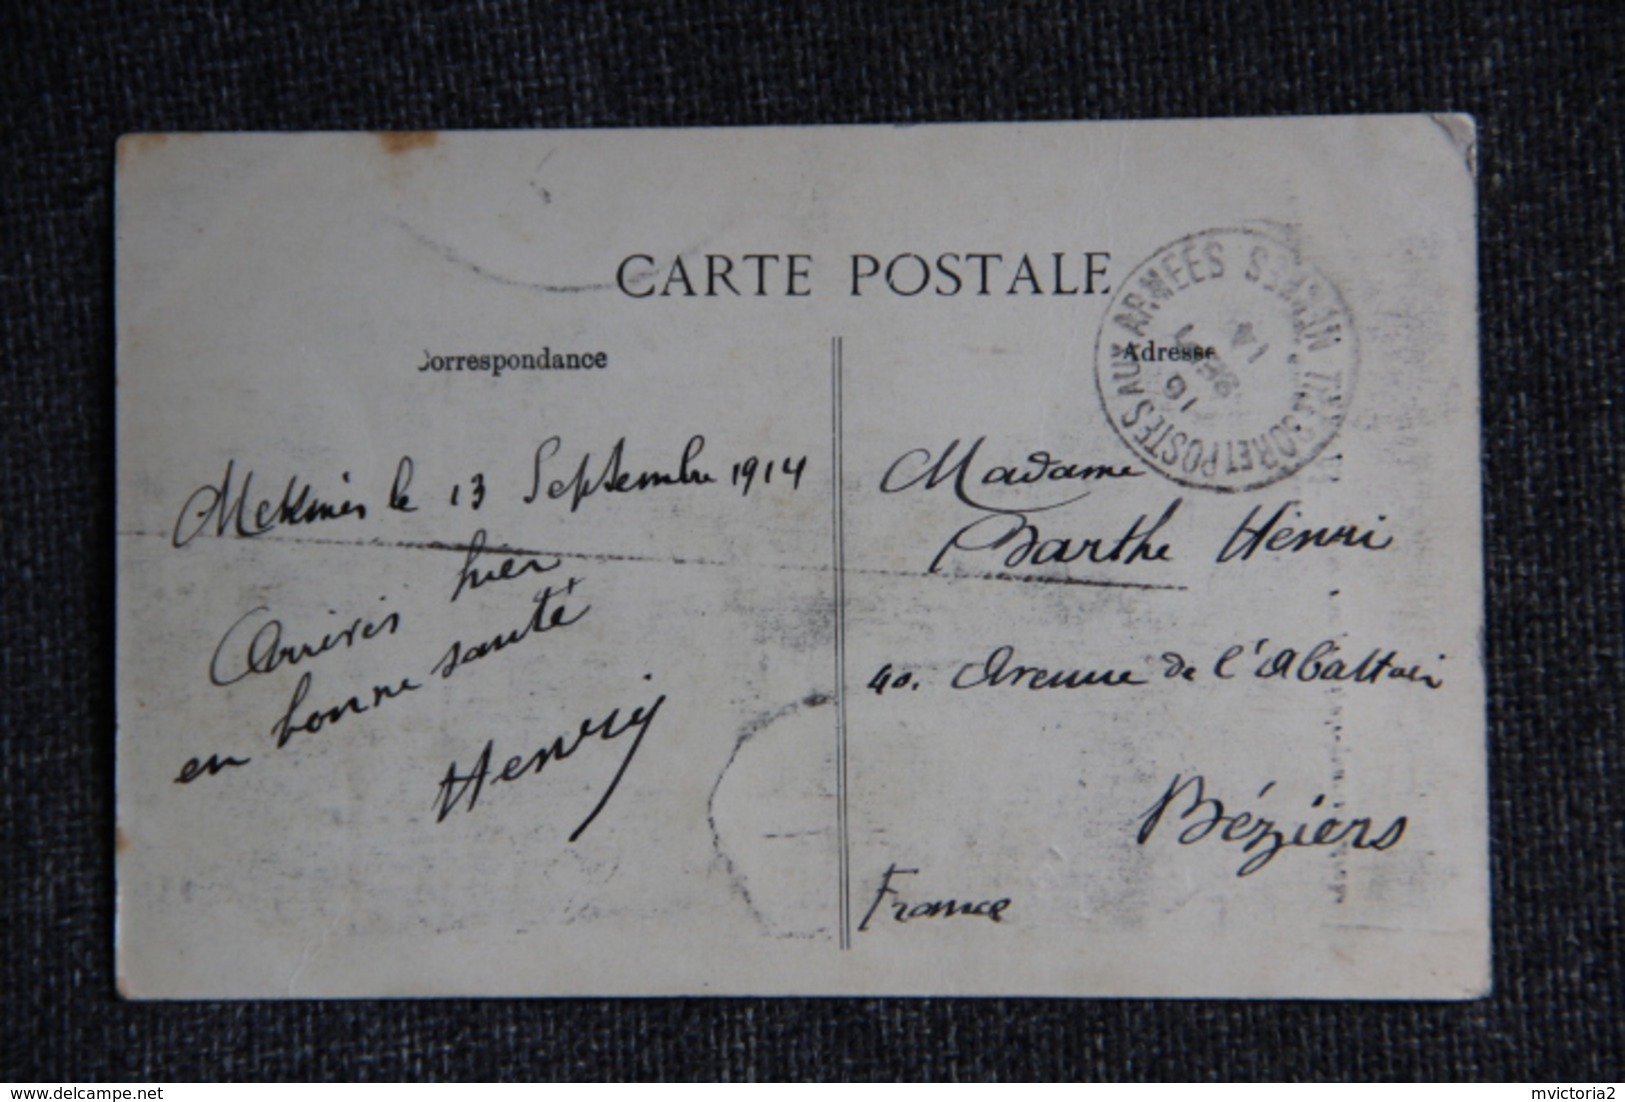 CARTE POSTALE
Correspondance
Adresse
TRESOR ET POSTES AUX ARMÉES
16
SEPT
14
Meknès le 13 Septembre 1914
Arrivés hier
en bonne santé
Henri
Madame
Barthe Henri
40. Avenue de l'Abattoir
Béziers
France
delcampe.net
mvictoria2